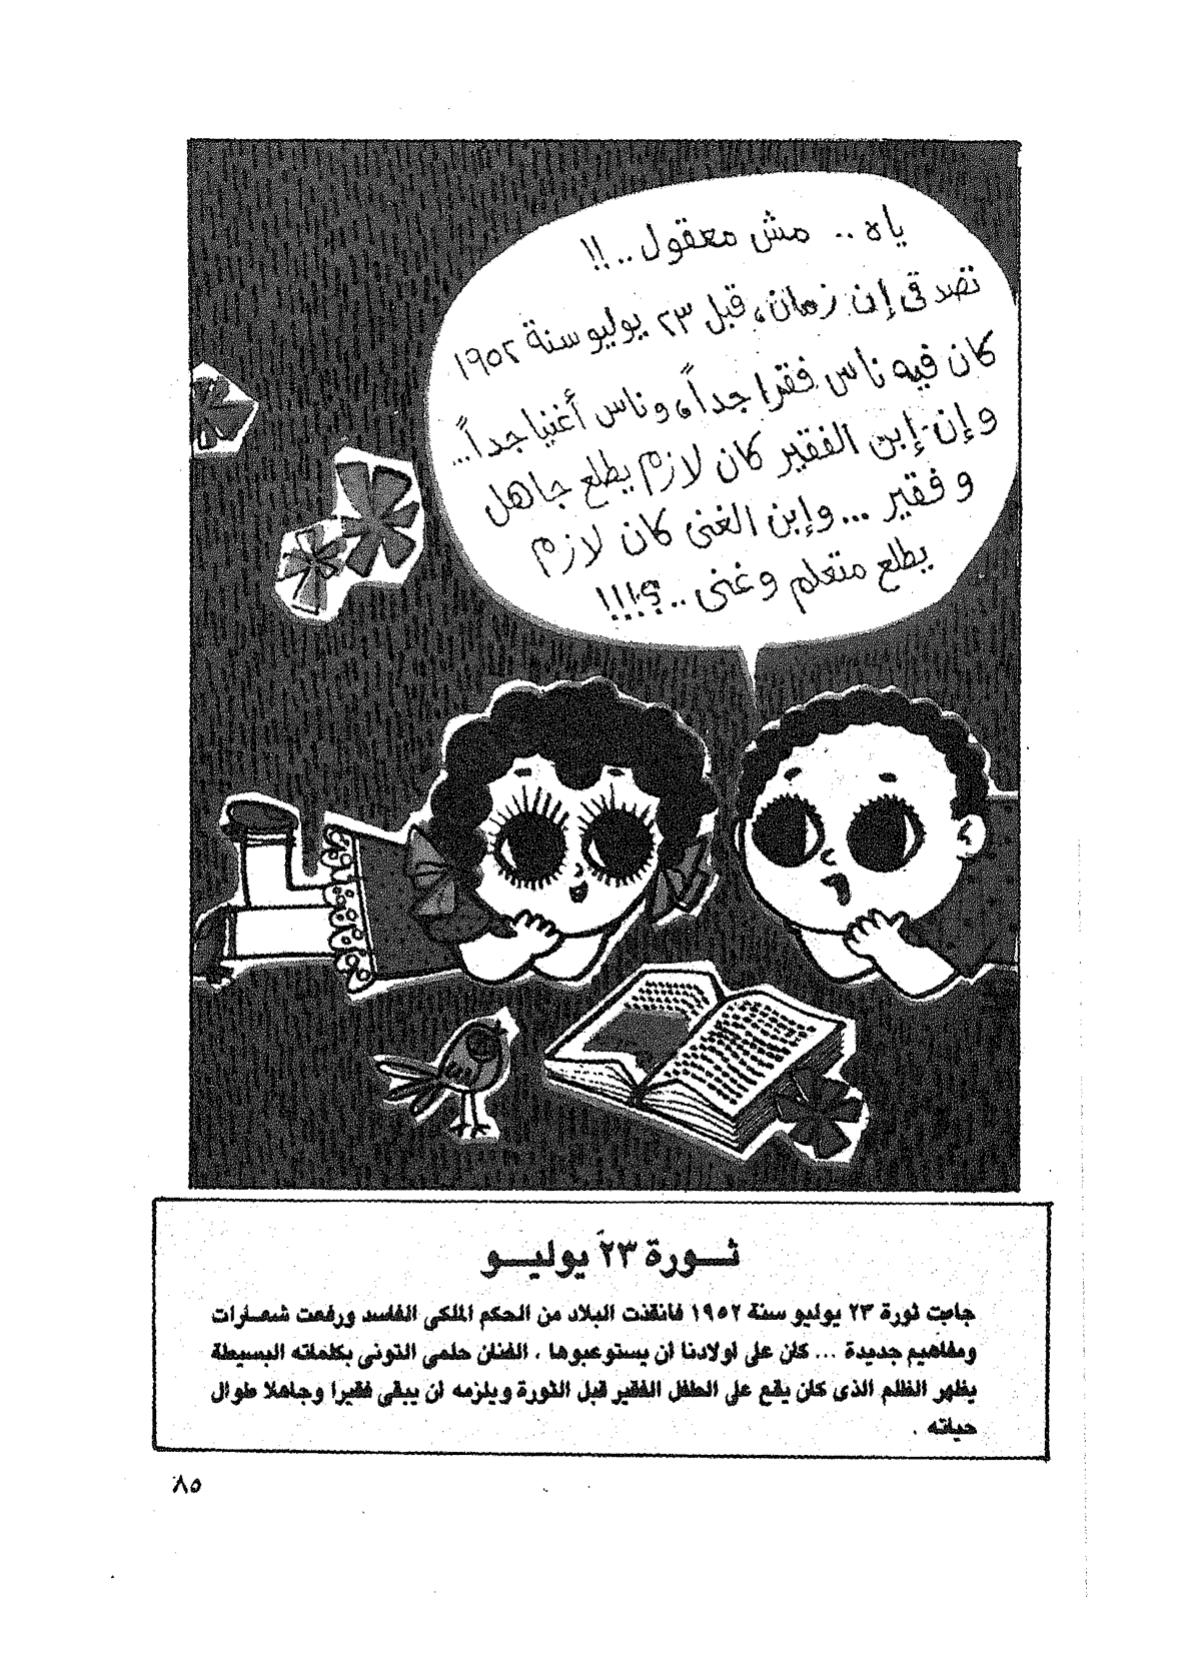 ياه .. مش معقول ..!!
تصدقى إن زمان، قبل ٢٣ يوليو سنة ١٩٥٢
كان فيه ناس فقرا جداً، وناس أغنيا جداً...
وإن إبن الفقير كان لازم يطلع جاهل
و فقير ... وإبن الغنى كان لازم
يطلع متعلم وغنى ..؟!!!
ثــورة ٢٣ يوليــو
جاءت ثورة ٢٣ يوليو سنة ١٩٥٢ فانقذت البلاد من الحكم الملكى الفاسد ورفعت شعــارات
ومفاهيم جديدة ... كان على اولادنا ان يستوعبوها . الفنان حلمى التونى بكلماته البسيطة
يظهر الظلم الذى كان يقع على الطفل الفقير قبل الثورة ويلزمه ان يبقى فقيرا وجاهلا طوال
حياته .
٨٥